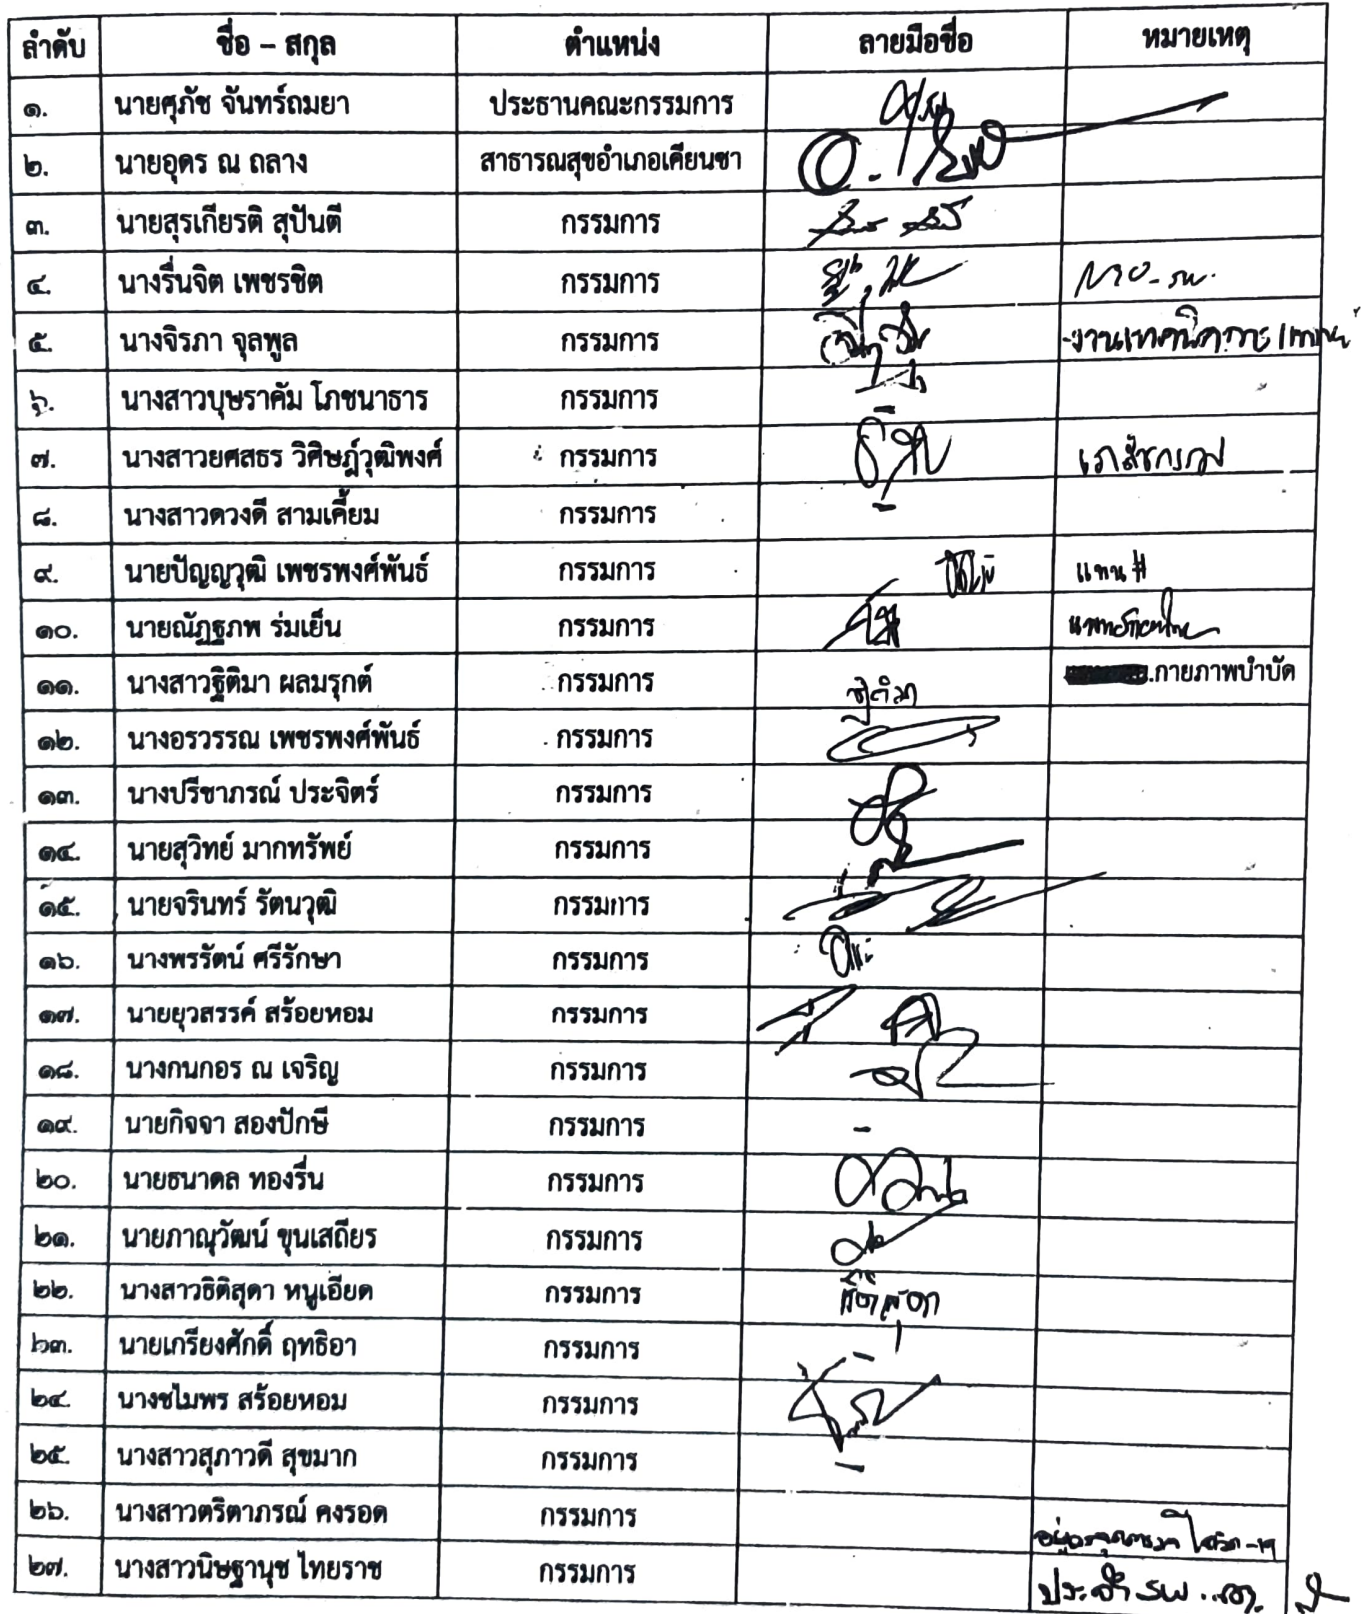 ลำดับ ชื่อ – สกุล ตำแหน่ง ลายมือชื่อ หมายเหตุ
๑. นายศุภัช จันทร์ถมยา ประธานคณะกรรมการ
๒. นายอุดร ณ ถลาง สาธารณสุขอำเภอเคียนซา
๓. นายสุรเกียรติ สุปันตี กรรมการ
๔. นางรื่นจิต เพชรชิต กรรมการ
๕. นางจิรภา จุลพูล กรรมการ -งานเทคนิคการแพทย์
๖. นางสาวบุษราคัม โภชนาธาร กรรมการ –
๗. นางสาวยศสธร วิศิษฎ์วุฒิพงศ์ กรรมการ เภสัชกรรม
๘. นางสาวดวงดี สามเคี้ยม กรรมการ –
๙. นายปัญญวุฒิ เพชรพงศ์พันธ์ กรรมการ แทน #
๑๐. นายณัฏฐภพ ร่มเย็น กรรมการ แพทย์แผนไทย
๑๑. นางสาวฐิติมา ผลมรุกต์ กรรมการ ฐิติมา .กายภาพบำบัด
๑๒. นางอรวรรณ เพชรพงศ์พันธ์ กรรมการ
๑๓. นางปรีชาภรณ์ ประจิตร์ กรรมการ
๑๔. นายสุวิทย์ มากทรัพย์ กรรมการ
๑๕. นายจรินทร์ รัตนวุฒิ กรรมการ
๑๖. นางพรรัตน์ ศรีรักษา กรรมการ
๑๗. นายยุวสรรค์ สร้อยหอม กรรมการ
๑๘. นางกนกอร ณ เจริญ กรรมการ
๑๙. นายกิจจา สองปักษี กรรมการ –
๒๐. นายธนาดล ทองรื่น กรรมการ
๒๑. นายภาณุวัฒน์ ขุนเสถียร กรรมการ
๒๒. นางสาวธิติสุดา หนูเอียด กรรมการ ธิติสุดา
๒๓. นายเกรียงศักดิ์ ฤทธิอา กรรมการ –
๒๔. นางชไมพร สร้อยหอม กรรมการ
๒๕. นางสาวสุภาวดี สุขมาก กรรมการ –
๒๖. นางสาวตริตาภรณ์ คงรอด กรรมการ
๒๗. นางสาวนิษฐานุช ไทยราช กรรมการ ประจำ รพ.